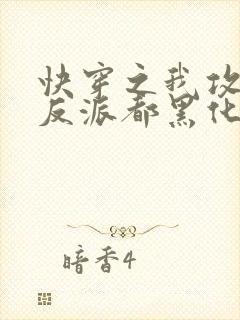 快穿之我攻
反派都黑化
暗香4